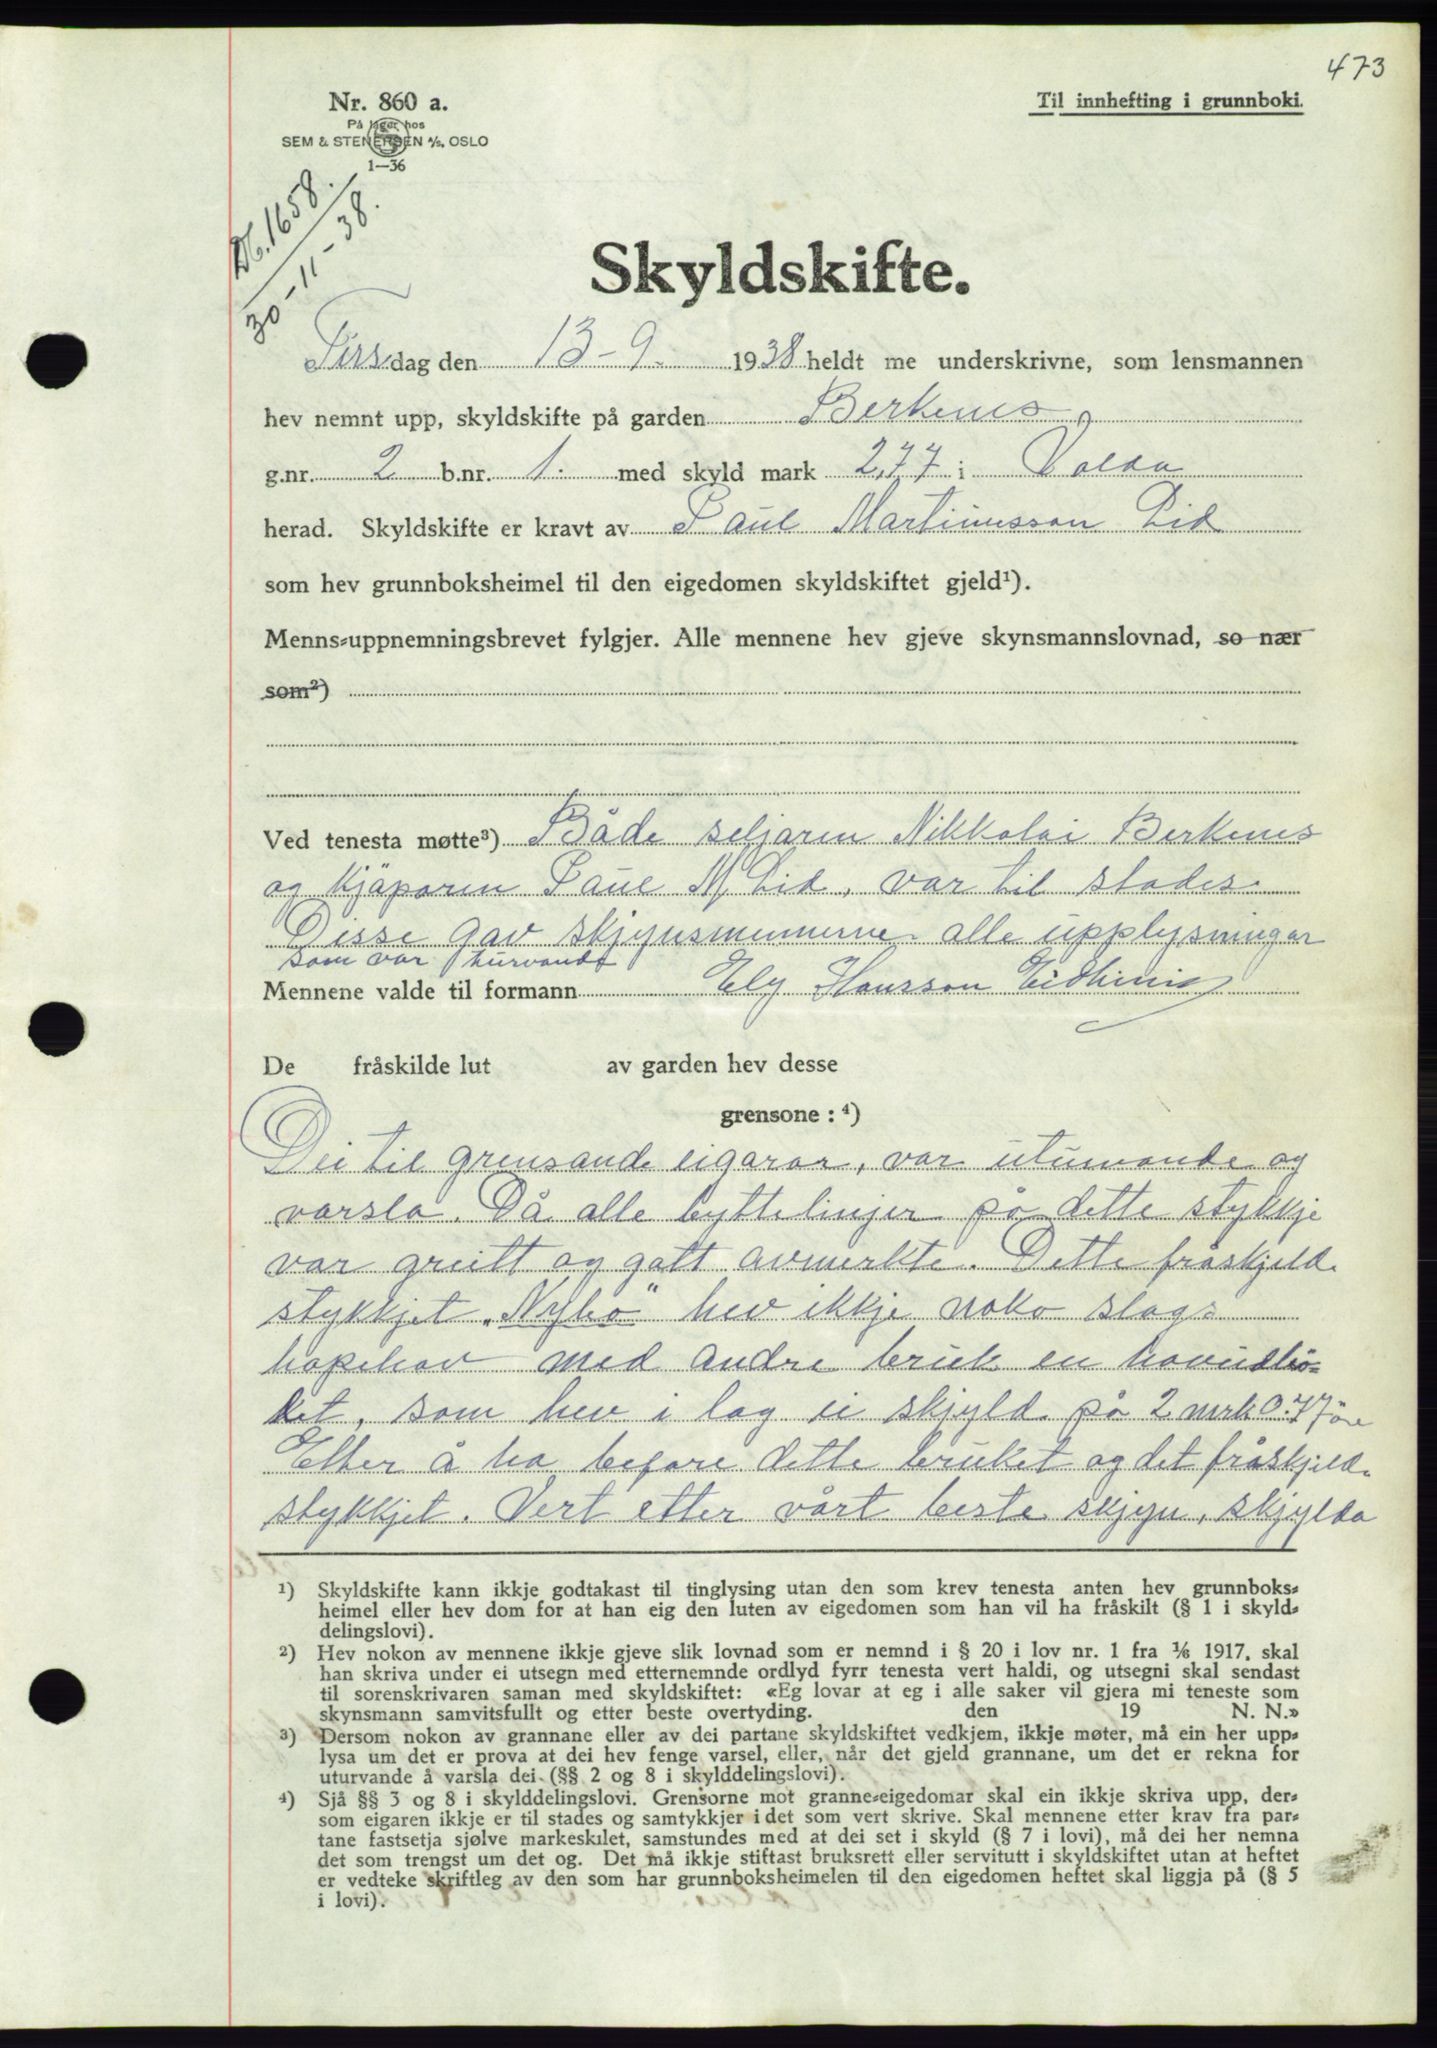 473
Nr. 860 a.
På lager hos
SEM & STENERSEN A/S, OSLO
1—36
Til innhefting i grunnboki.
Db. 1658.
30-11-38.
Skyldskifte.
Tirsdag den 13-9. 1938 heldt me underskrivne, som lensmannen
hev nemnt upp, skyldskifte på garden Berknes
g.nr. 2 b.nr. 1. med skyld mark 2,77 i Volda
herad. Skyldskifte er kravt av Paul Martinusson Lid
som hev grunnboksheimel til den eigedomen skyldskiftet gjeld¹).
Menns-uppnemningsbrevet fylgjer. Alle mennene hev gjeve skynsmannslovnad, so nær
som²)
Ved tenesta møtte³) Både seljaren Nikkolai Berknes
og kjøparen Paul M Lid, var til stades.
Disse gav skjynsmennerne alle upplysningar
som var turvande
Mennene valde til formann Ely Hansson Eidhini
De fråskilde lut av garden hev desse
grensone : ⁴)
Dei til grensande eigarar, var uturvande og
varsla. Då alle byttelinjer på dette stykkje
var greitt og gått avmerkte. Dette fråskjeld
stykkjet "Nybø" hev ikkje noko slags
hopehav med andre bruk en hovudbø-
let, som hev i lag ei skjyld på 2 mrk 0.77 öre
Etter å ha befare dette bruket og det fråskjeld
stykkjet. Vert etter vårt beste skjyn, skjylda
¹) Skyldskifte kann ikkje godtakast til tinglysing utan den som krev tenesta anten hev grunnboks-
heimel eller hev dom for at han eig den luten av eigedomen som han vil ha fråskilt (§ 1 i skyld-
delingslovi).
²) Hev nokon av mennene ikkje gjeve slik lovnad som er nemnd i § 20 i lov nr. 1 fra 1/6 1917, skal
han skriva under ei utsegn med etternemnde ordlyd fyrr tenesta vert haldi, og utsegni skal sendast
til sorenskrivaren saman med skyldskiftet: «Eg lovar at eg i alle saker vil gjera mi teneste som
skynsmann samvitsfullt og etter beste overtyding. den 19 N. N.»
³) Dersom nokon av grannane eller av dei partane skyldskiftet vedkjem, ikkje møter, må ein her upp-
lysa um det er prova at dei hev fenge varsel, eller, når det gjeld grannane, um det er rekna for
uturvande å varsla dei (§§ 2 og 8 i skylddelingslovi).
⁴) Sjå §§ 3 og 8 i skylddelingslovi. Grensorne mot granne-eigedomar skal ein ikkje skriva upp, der-
som eigaren ikkje er til stades og samtykkjer i det som vert skrive. Skal mennene etter krav fra par-
tane fastsetja sjølve markeskilet, samstundes med at dei set i skyld (§ 7 i lovi), må dei her nemna
det som trengst um det og. Det må ikkje stiftast bruksrett eller servitutt i skyldskiftet utan at heftet
er vedteke skriftleg av den som har grunnboksheimelen til den eigedomen heftet skal liggja på (§ 5
i lovi).